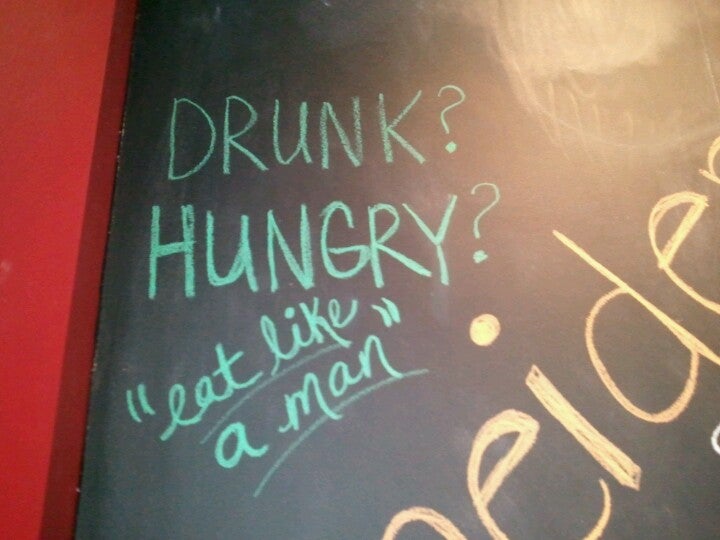 DRUNK?
HUNGRY?
"eat like
a man"